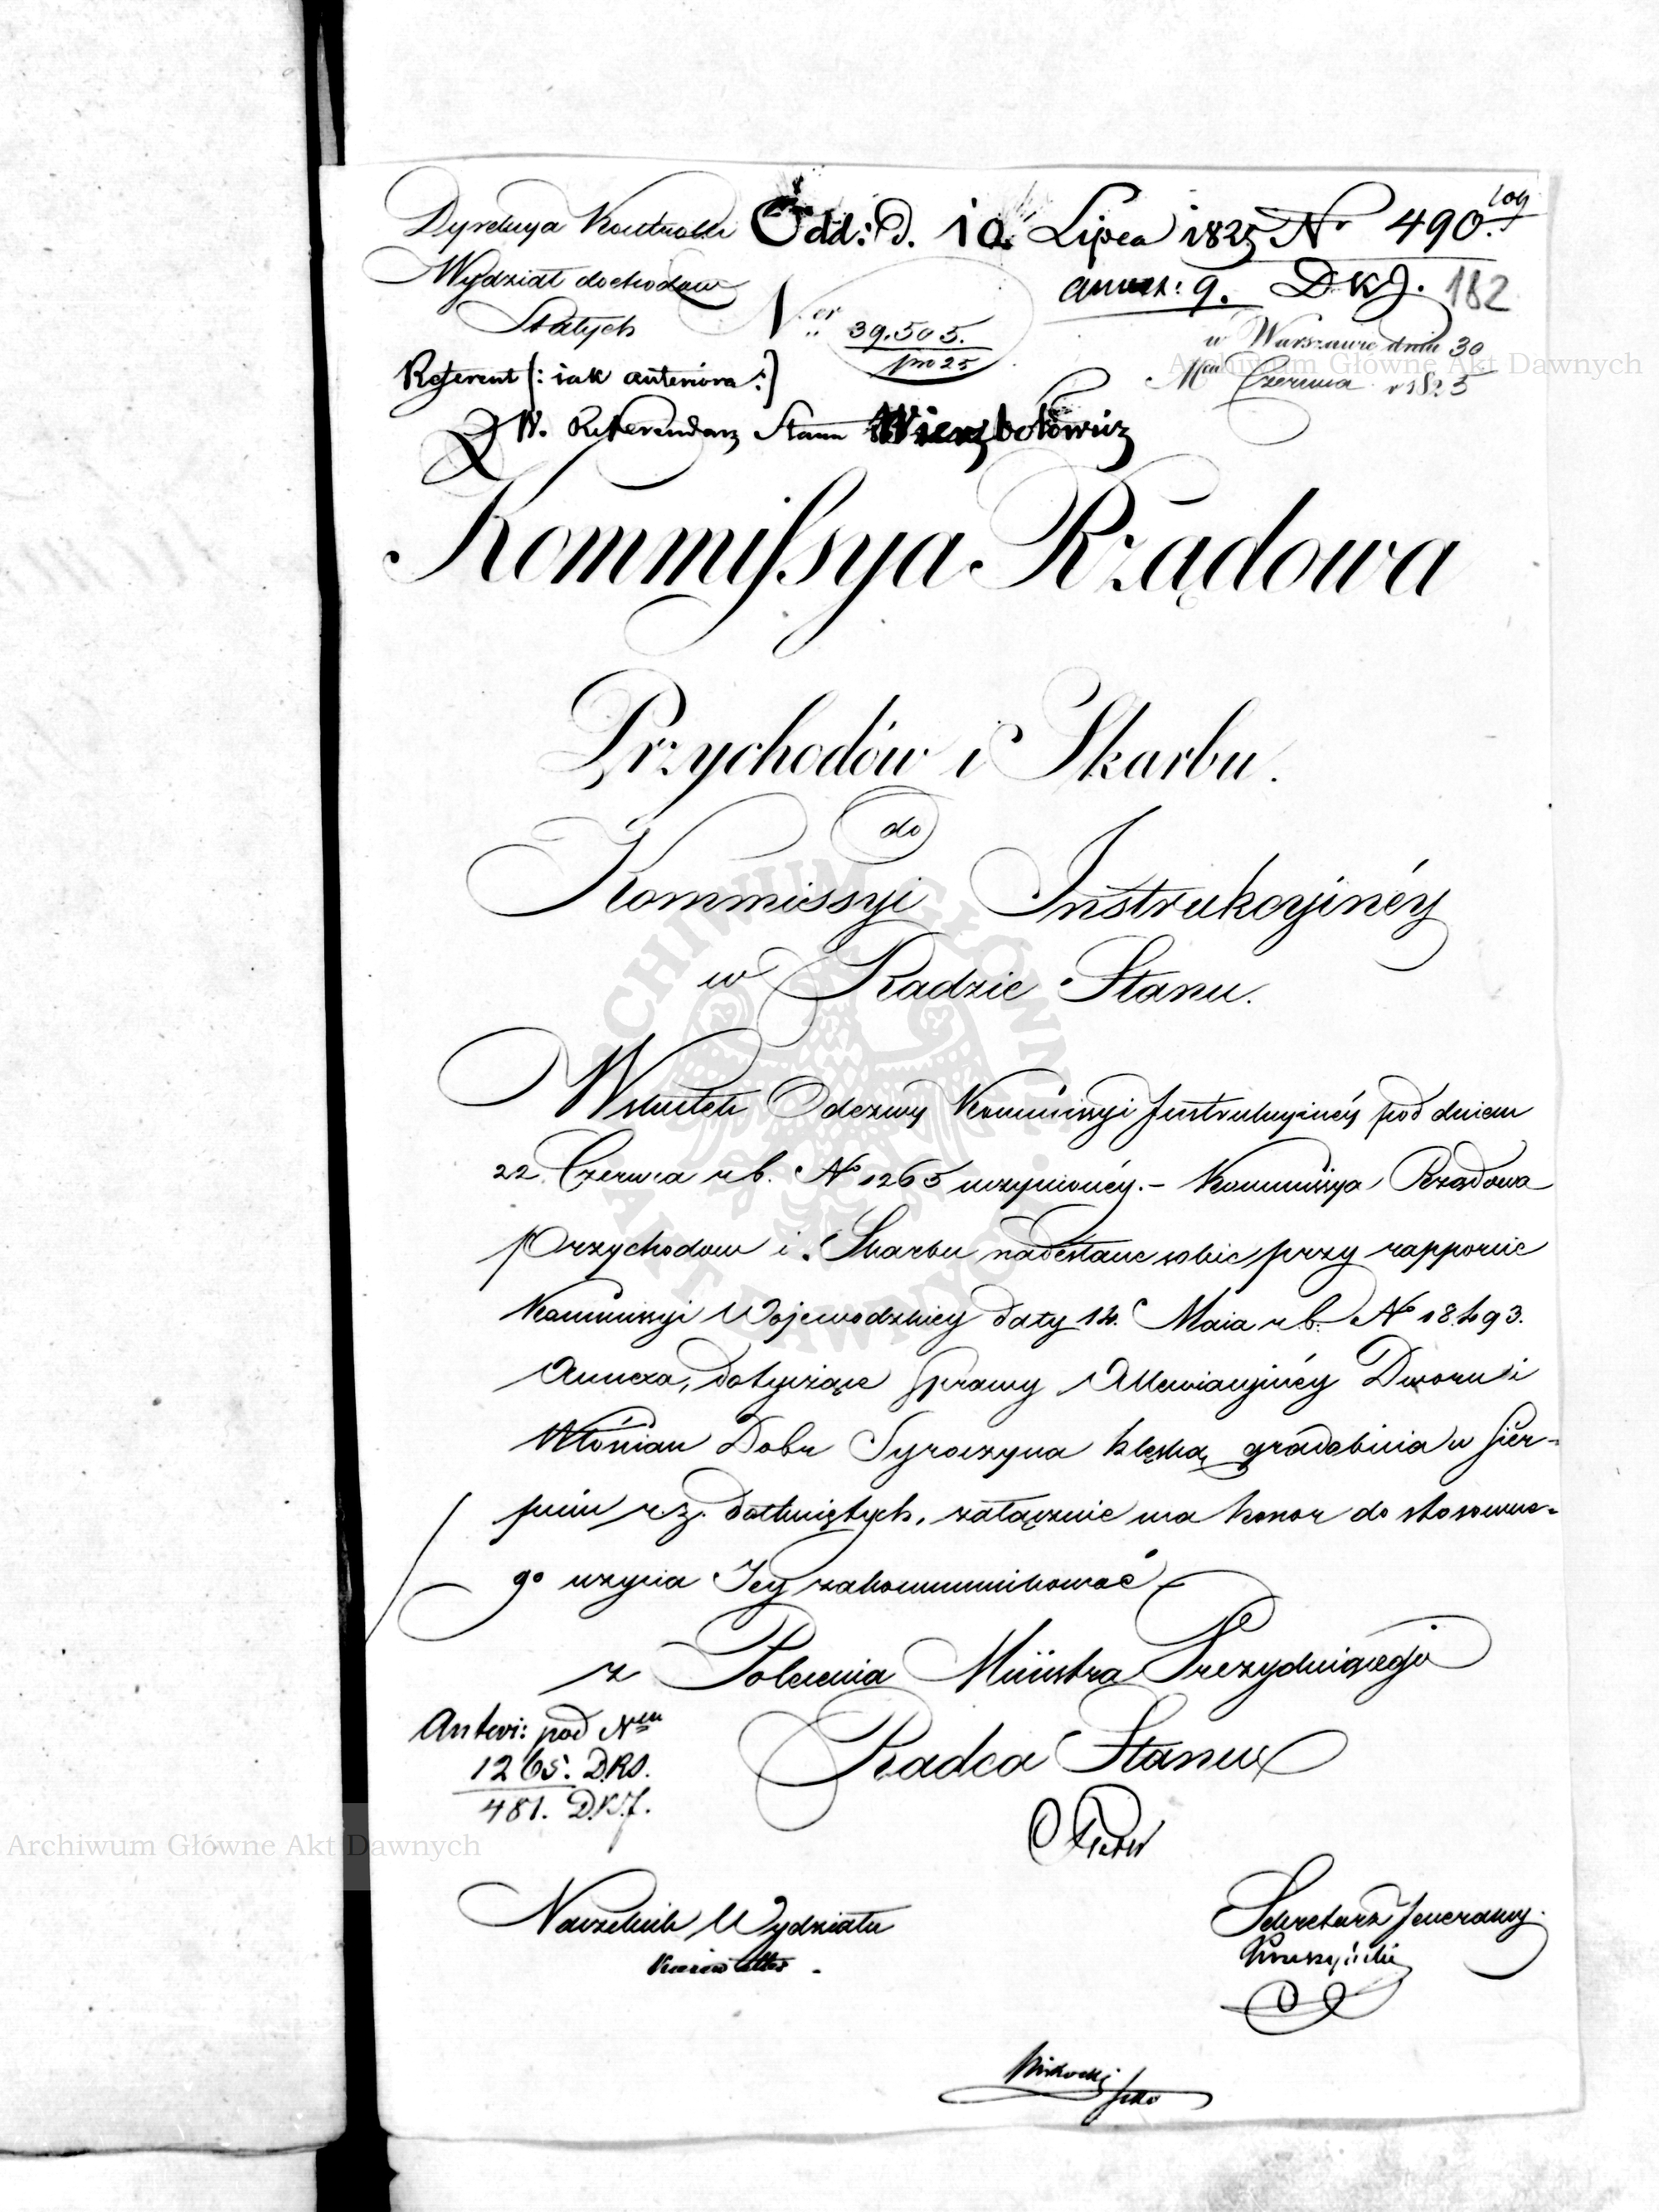 Dyrekcya Kontrolli
Odd: D. 10. Lipca 1825 Nr 490.
109
Wydział dochodów
Stałych
annex: 9. D.K.J.
182
Ner 39.505.
pro 25
w Warszawie dnia 30
Mca Czerwca r 1825
Referent (: iak anteriora :)
JW. Referendarz Stanu Wierzbołowicz
Kommissya Rządowa
Przychodów i Skarbu.
do
Kommissyi Instrukcyinéy
w Radzie Stanu.
Wskutek Odezwy Kommissyi Instrukcyinéy pod dniem
22. Czerwca r.b. No 1265 uczynionéy.- Kommissya Rządowa
Przychodow i Skarbu nadesłane sobie przy rapporcie
Kommissyi Wojewodzkiey daty 14. Maia r.b. No 18.493.
Annexa, dotyczące sprawy Allewiacyinéy Dworu i
Włościan Dobr Syroczyna klęską gradobicia w Sier-
pniu r.z. dotkniętych, załącznie ma honor do stosowne-
go użycia Jey zakommunikować
z Polecenia Ministra Prezyduiącego
Radca Stanu
Anteri: pod Nem
1265. D.R.S.
481. D.K.J.
Naczelnik Wydziału
Sekretarz Jeneralny.
Archiwum Główne Akt Dawnych
Archiwum Główne Akt Dawnych
ARCHIWUM GŁÓWNE AKT DAWNYCH